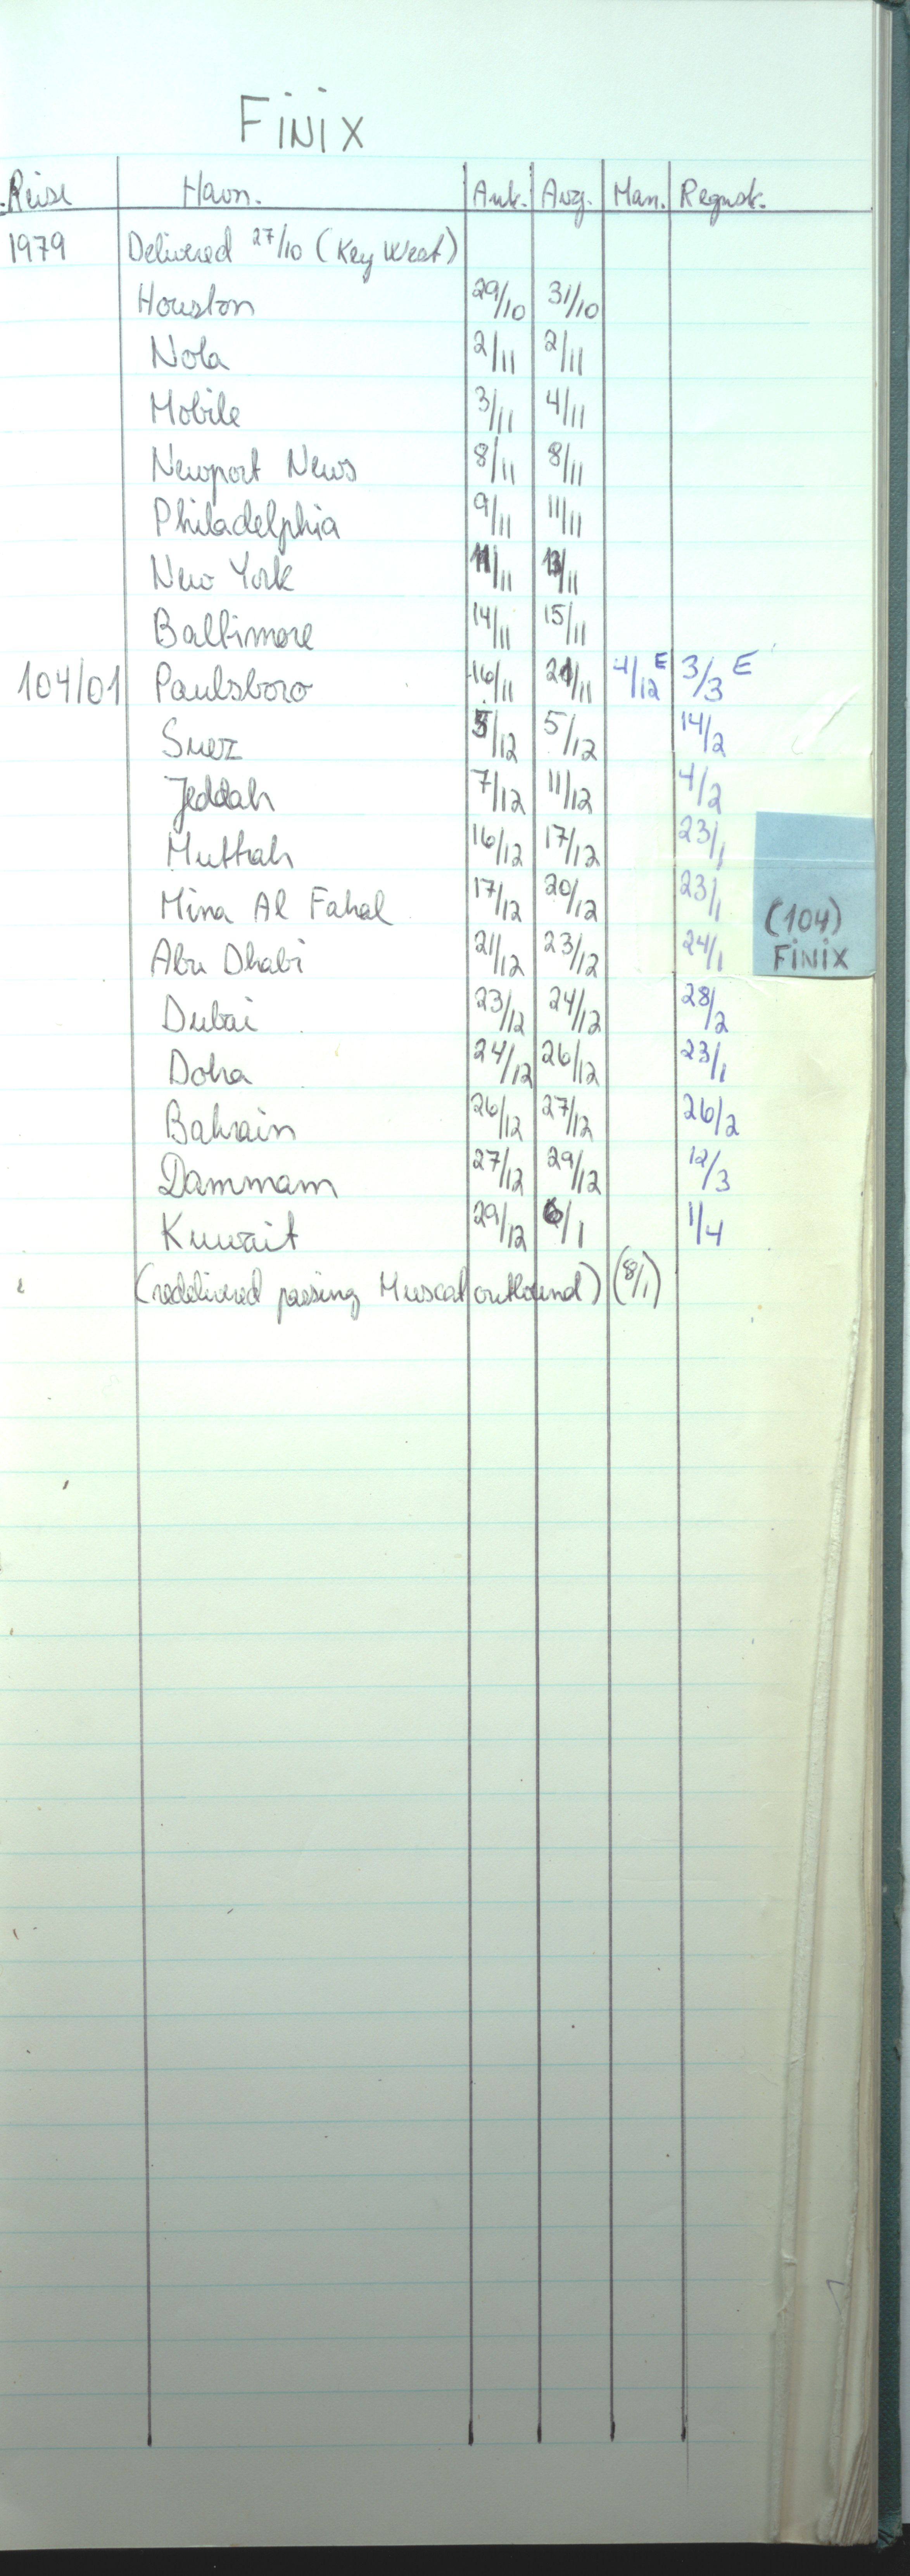 FINIX
Reise Havn. Ank. Avg. Man. Regnsk.
1979 Delivered 27/10 (Key West)
Houston 29/10 31/10
Nola 2/11 2/11
Mobile 3/11 4/11
Newport News 8/11 8/11
Philadelphia 9/11 11/11
New York 11/11 13/11
Baltimore 14/11 15/11
104/01 Paulsboro 16/11 21/11 4/12 E 3/3 E
Suez 5/12 5/12 14/2
Jeddah 7/12 11/12 4/2
Muttrah 16/12 17/12 23/1
Mina Al Fahal 17/12 20/12 23/1
Abu Dhabi 21/12 23/12 24/1
Dubai 23/12 24/12 28/2
Doha 24/12 26/12 23/1
Bahrain 26/12 27/12 26/2
Dammam 27/12 29/12 12/3
Kuwait 29/12 6/1 1/4
(redelivered passing Muscat outbound) (8/1)
(104)
FINIX